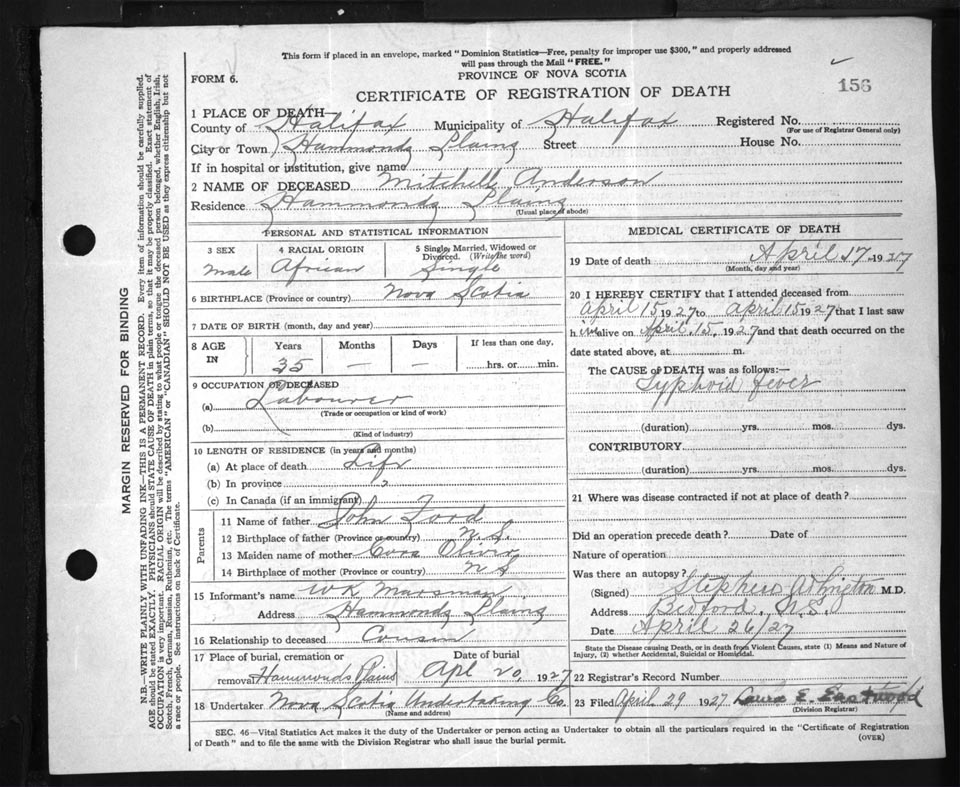 This form if placed in an envelope, marked "Dominion Statistics—Free, penalty for improper use $300," and properly addressed
will pass through the Mail "FREE."
FORM 6.
PROVINCE OF NOVA SCOTIA
156
CERTIFICATE OF REGISTRATION OF DEATH
1 PLACE OF DEATH
County of Halifax Municipality of Halifax Registered No.
(For use of Registrar General only)
City or Town Hammonds Plains Street House No.
If in hospital or institution, give name
2 NAME OF DECEASED Mitchell Anderson
Residence Hammonds Plains
(Usual place of abode)
PERSONAL AND STATISTICAL INFORMATION
3 SEX 4 RACIAL ORIGIN 5 Single, Married, Widowed or
Divorced. (Write the word)
Male African Single
6 BIRTHPLACE (Province or country) Nova Scotia
7 DATE OF BIRTH (month, day and year)
8 AGE IN Years Months Days If less than one day,
35 — — hrs. or min.
9 OCCUPATION OF DECEASED
(a) Labourer
(Trade or occupation or kind of work)
(b)
(Kind of industry)
10 LENGTH OF RESIDENCE (in years and months)
(a) At place of death Life
(b) In province "
(c) In Canada (if an immigrant)
Parents
11 Name of father John Ford
12 Birthplace of father (Province or country) N.S.
13 Maiden name of mother Cora Oliver
14 Birthplace of mother (Province or country) N S
15 Informant's name W K Marsman
Address Hammonds Plains
16 Relationship to deceased Cousin
17 Place of burial, cremation or Date of burial
removal Hammonds Plains Apl 20, 1927
18 Undertaker Nova Scotia Undertaking Co.
(Name and address)
MEDICAL CERTIFICATE OF DEATH
19 Date of death April 17 1927
(Month, day and year)
20 I HEREBY CERTIFY that I attended deceased from
April 15 1927 to April 15 1927 that I last saw
him alive on April 15, 1927 and that death occurred on the
date stated above, at m.
The CAUSE OF DEATH was as follows:—
Typhoid fever
(duration) yrs. mos. dys.
CONTRIBUTORY.
(duration) yrs. mos. dys.
21 Where was disease contracted if not at place of death?
Did an operation precede death? Date of
Nature of operation
Was there an autopsy?
(Signed) M.D.
Address Bedford, N.S.
Date April 26/27
State the Disease causing Death, or in death from Violent Causes, state (1) Means and Nature of
Injury, (2) whether Accidental, Suicidal or Homicidal.
22 Registrar's Record Number
23 Filed April 29 1927 Laura E. Eastwood
(Division Registrar)
SEC. 46—Vital Statistics Act makes it the duty of the Undertaker or person acting as Undertaker to obtain all the particulars required in the "Certificate of Registration
of Death" and to file the same with the Division Registrar who shall issue the burial permit.
(OVER)
MARGIN RESERVED FOR BINDING
N.B.—WRITE PLAINLY WITH UNFADING INK—THIS IS A PERMANENT RECORD. Every item of information should be carefully supplied.
AGE should be stated EXACTLY. PHYSICIANS should STATE CAUSE OF DEATH in plain terms, so that it may be properly classified. Exact statement of
OCCUPATION is very important. RACIAL ORIGIN will be described by stating to what people or tongue the deceased person belonged, whether English, Irish,
Scotch, French, German, Russian, Ruthenian, etc. The terms "AMERICAN" or "CANADIAN" SHOULD NOT BE USED as they express citizenship but not
a race or people. See instructions on back of Certificate.